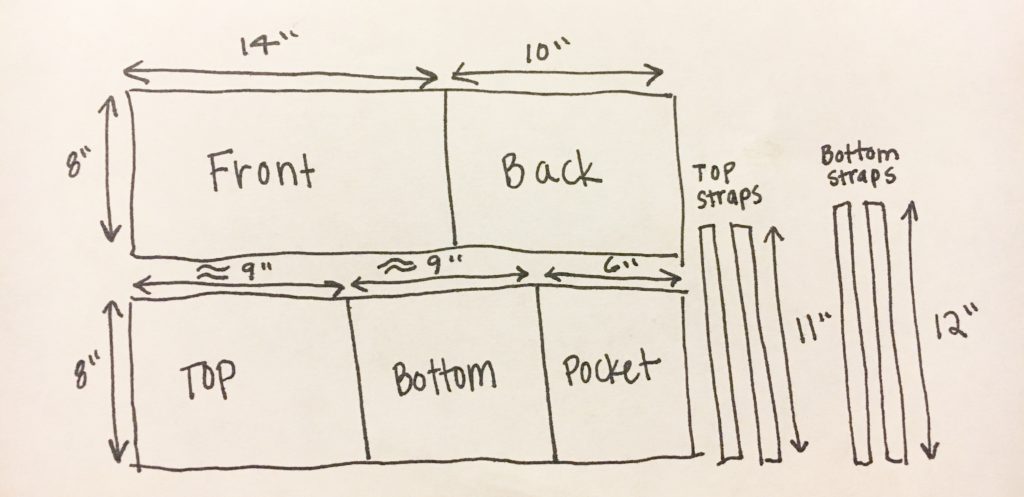 14" 10"
8" Front Back
Top
straps
Bottom
straps
≈ 9" ≈ 9" 6"
8" Top Bottom Pocket
11" 12"